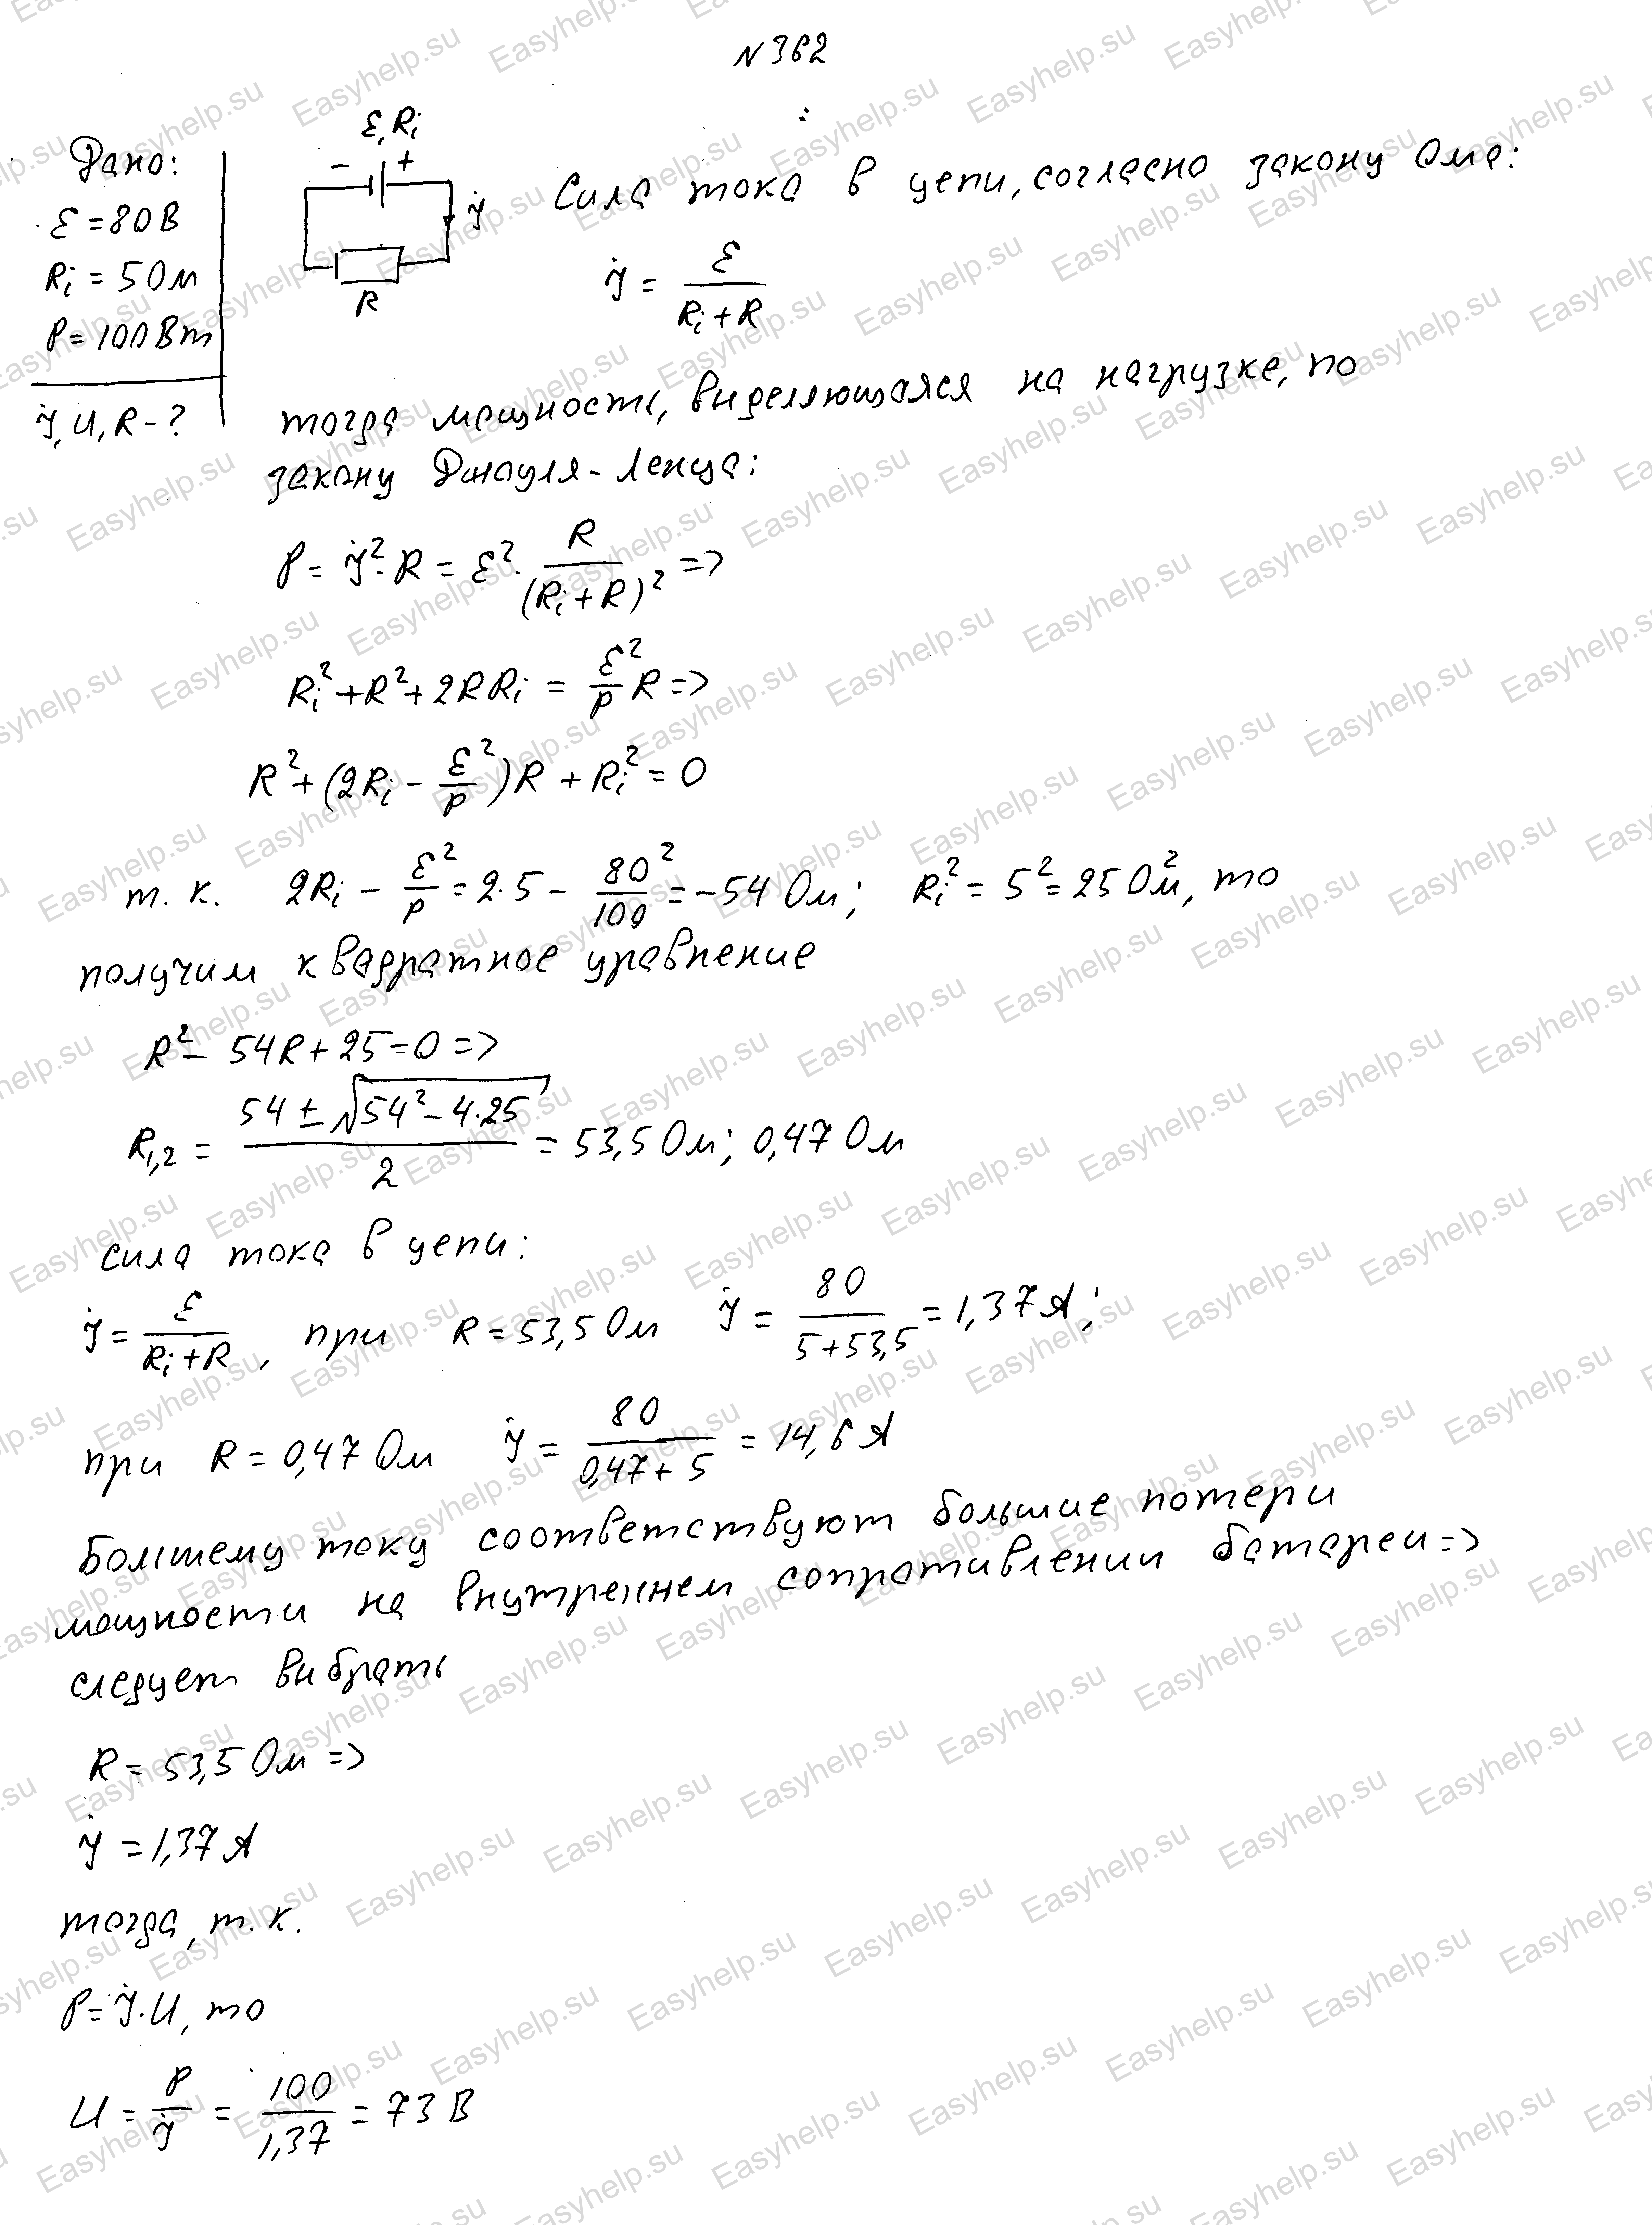 N 362
Дано:
ε = 80 В
Ri = 5 Ом
P = 100 Вт
I, U, R - ?
ε, Ri
- +
I
R
Сила тока в цепи, согласно закону Ома:
I = ε / (Ri + R)
тогда мощность, виделяющаяся на нагрузке, по
закону Джоуля-Ленца:
P = I² · R = ε² · R / (Ri + R)² =>
Ri² + R² + 2RRi = ε²/P R =>
R² + (2Ri - ε²/P)R + Ri² = 0
т. к. 2Ri - ε²/P = 2·5 - 80²/100 = -54 Ом; Ri² = 5² = 25 Ом², то
получим квадратное уравнение
R² - 54R + 25 = 0 =>
R1,2 = (54 ± √(54² - 4·25)) / 2 = 53,5 Ом; 0,47 Ом
сила тока в цепи:
I = ε / (Ri + R), при R = 53,5 Ом I = 80 / (5 + 53,5) = 1,37 А;
при R = 0,47 Ом I = 80 / (0,47 + 5) = 14,6 А
Большему току соответствуют большие потери
мощности на внутреннем сопротивлении батареи =>
следует вибрать
R = 53,5 Ом =>
I = 1,37 А
тогда, т. к.
P = I · U, то
U = P / I = 100 / 1,37 = 73 В
Easyhelp.su